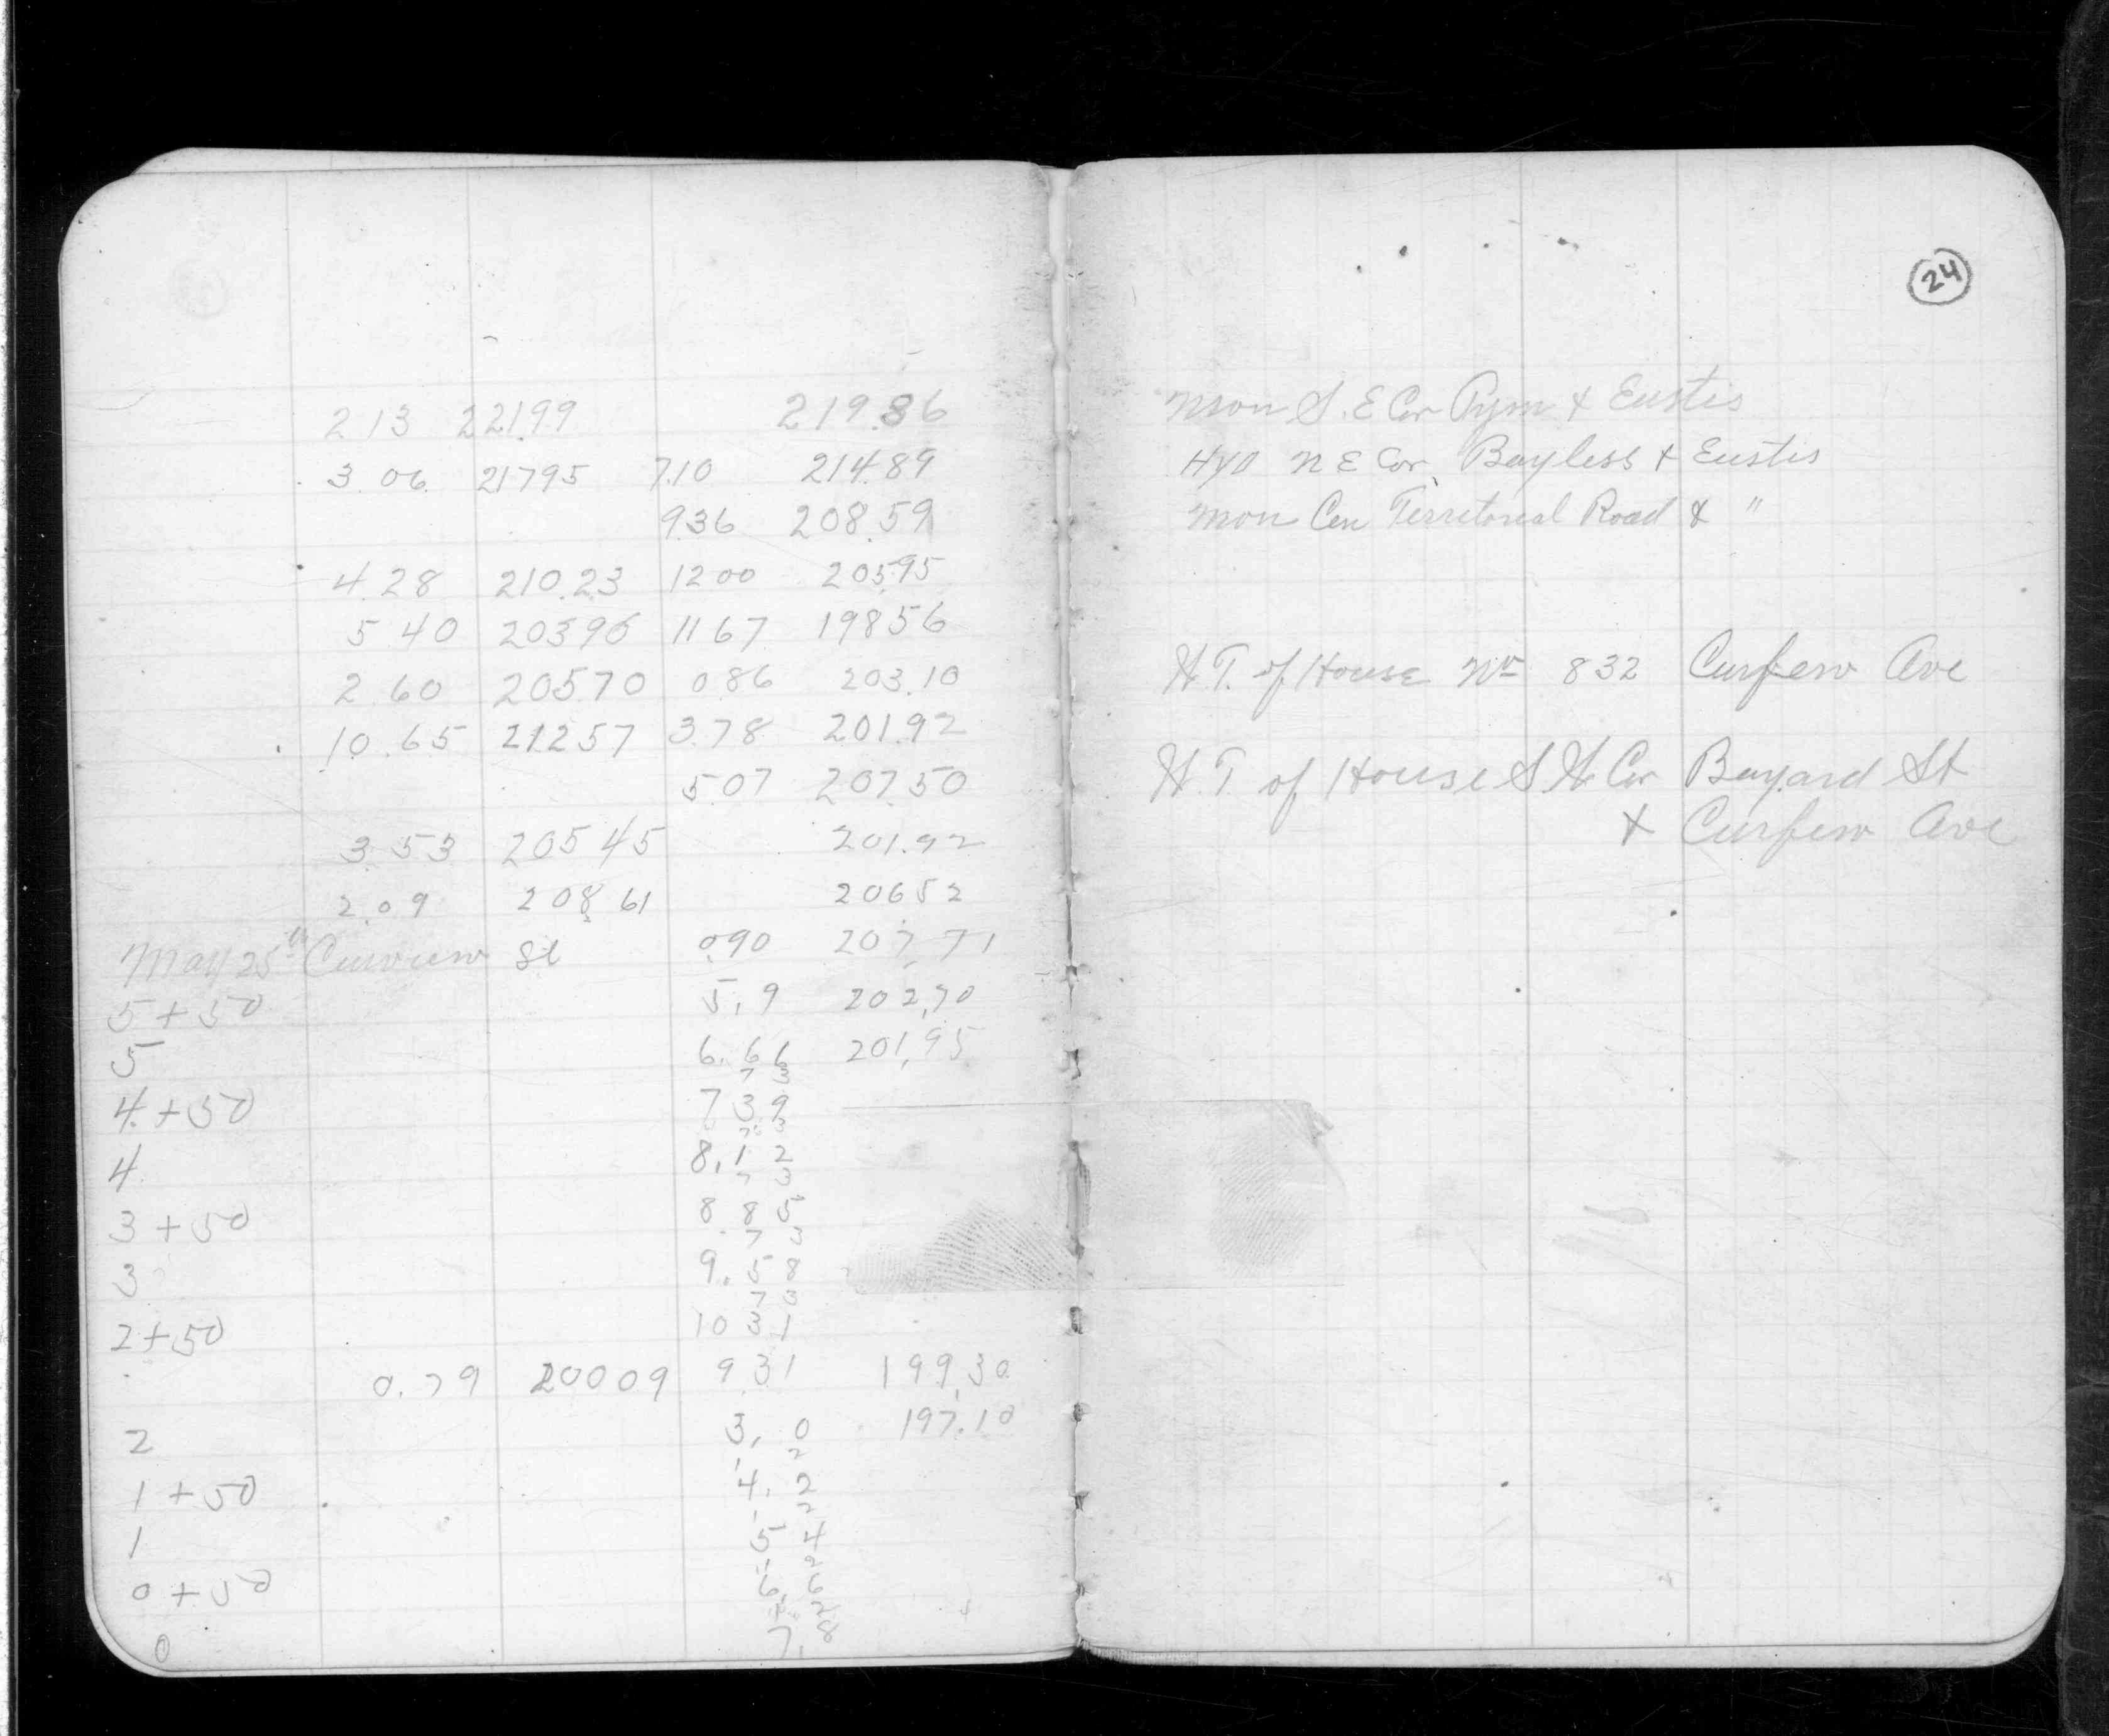 24
2.13 221.99 219.86
3.06 217.95 7.10 214.89
9.36 208.59
4.28 210.23 12.00 205.95
5.40 203.96 11.67 198.56
2.60 205.70 0.86 203.10
10.65 212.57 3.78 201.92
5.07 207.50
3.53 205.45 201.92
2.09 208.61 206.52
May 25th St 0.90 207.71
5+50 5.9 202.70
5 6.66 201.95
7 3
4+50 7 3 9
7 3
4 8.1 2
7 3
3+50 8.8 5
7 3
3 9.5 8
7 3
2+50 10 3 1
0.79 200 09 9.31 199.30
2 3.0 197.10
1 2
1+50 4.2
1 2
1 5 4
1 2
0+50 6.6
1 2
0 7.8
Mon S.E Cor Pym & Eustis
Hyd N E Cor Bayless & Eustis
Mon Cen Territorial Road & "
W.T. of House No 832 Curfew Ave
W.T of House S W Cor Bayard St
& Curfew Ave